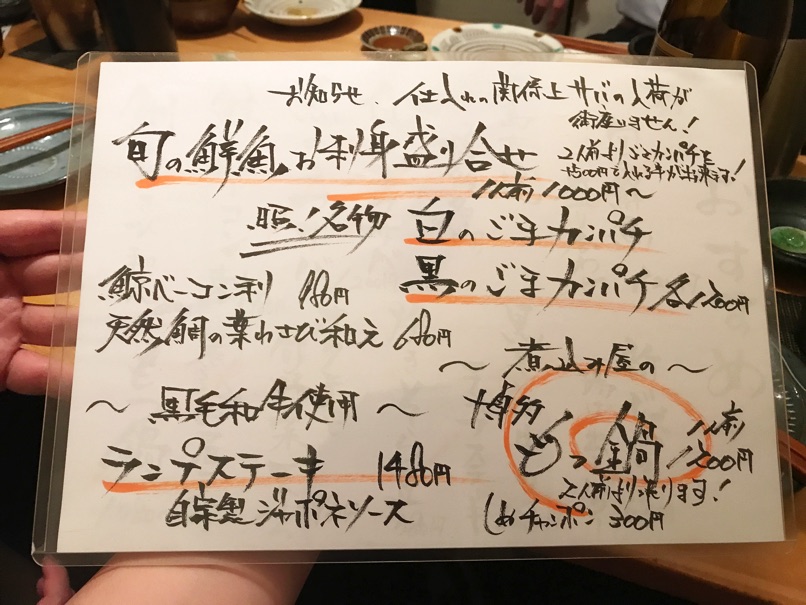 お知らせ、仕入れの関係上サバの入荷が
御座いません！
旬の鮮魚お刺身盛り合せ
1人前1000円〜
2人前よりごまカンパチを
+500円で入れる事が出来ます！
照ノ名物 白のごまカンパチ
黒のごまカンパチ 各1200円
鯨ベーコン刺 980円
天然鯛の葉わさび和え 680円
〜 煮込み屋の 〜
博多
もつ鍋 1人前
1200円
2人前より承ります！
〆チャンポン 300円
〜 黒毛和牛使用 〜
ランプステーキ 1480円
自家製ジャポネソース